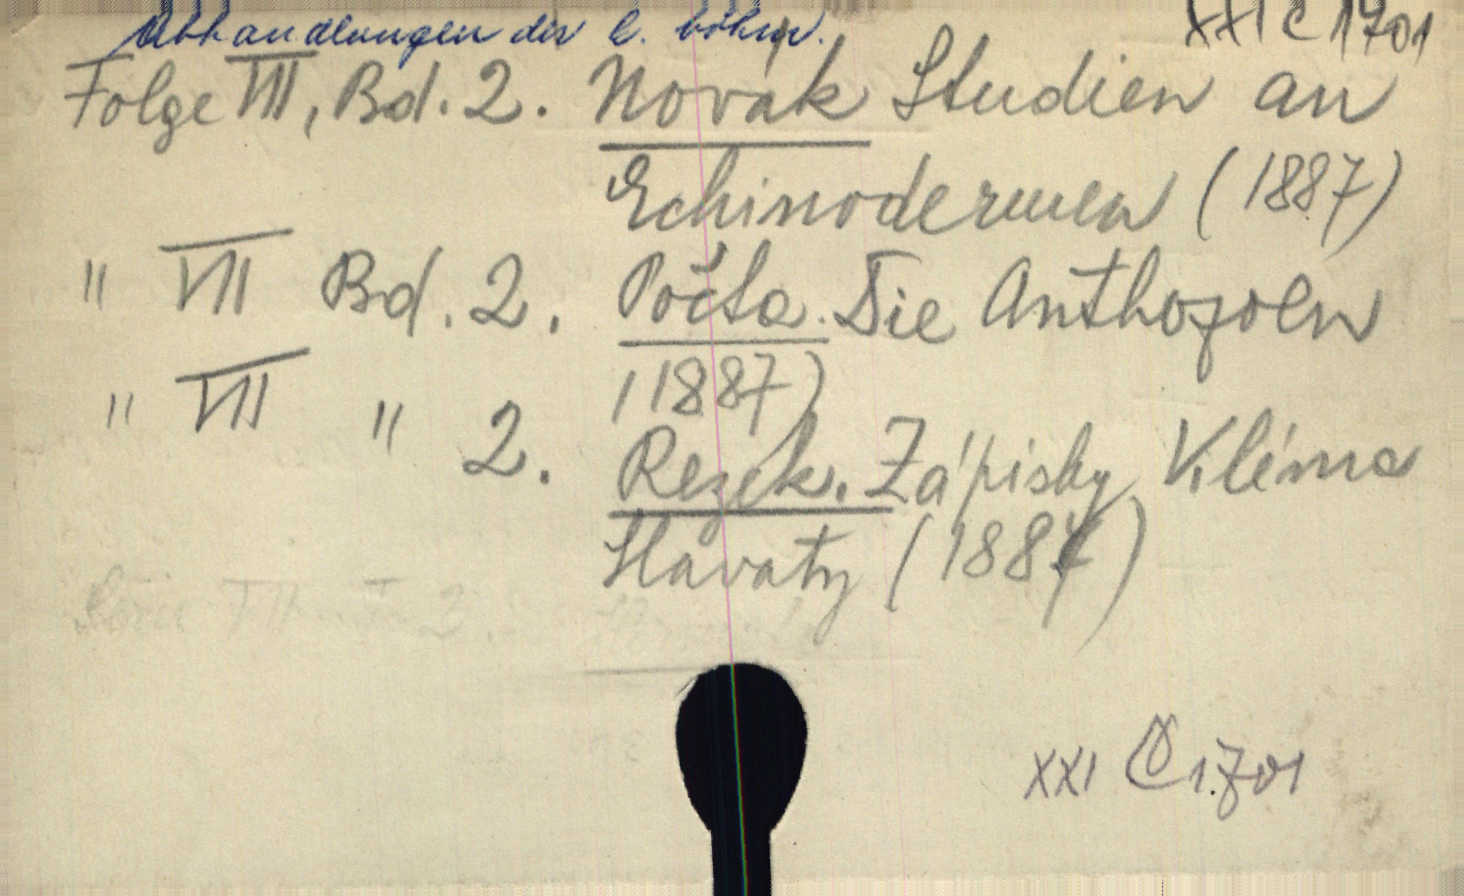 Abhandlungen der k. böhm. XXI C 1701
Folge VII, Bd. 2. Novák Studien an
Echinodermen (1887)
" VII Bd. 2. Počta. Die Anthozoen
(1887)
" VII " 2. Rezek. Zápisky Viléma
Slavaty (1887)
XXI C 1.701